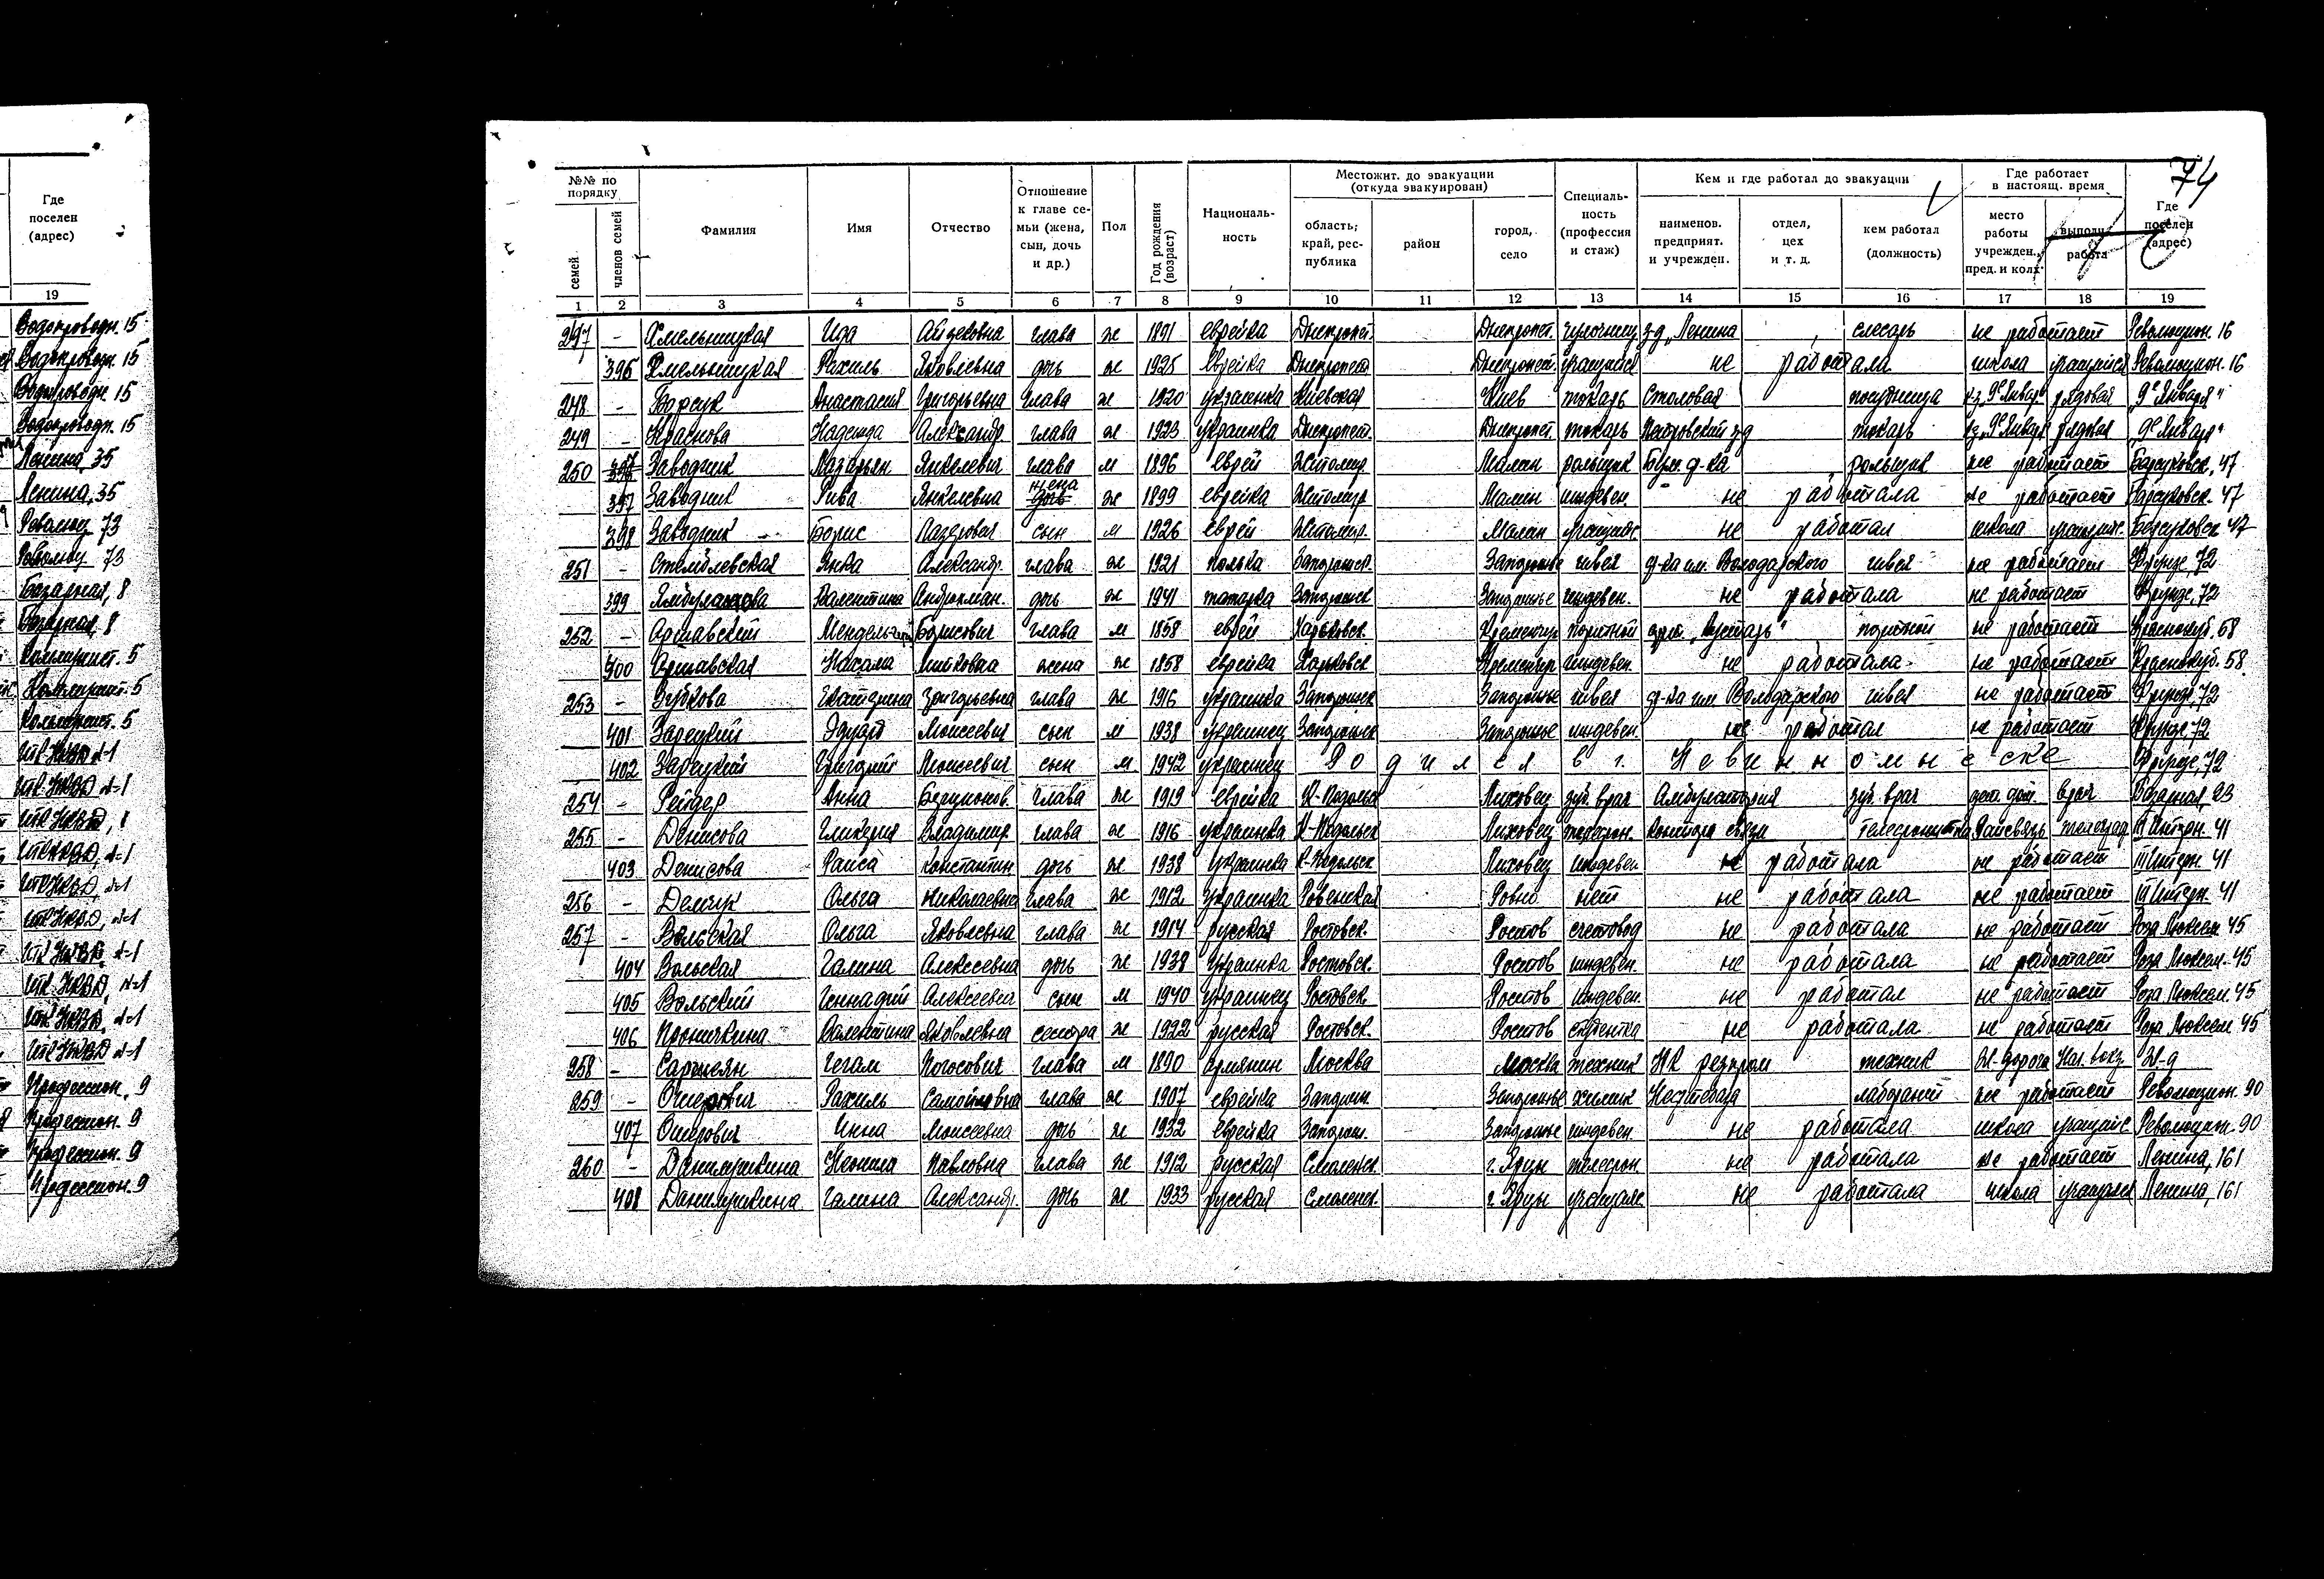 Где
поселен
(адрес)
19
Водопроводн. 15
Водопроводн. 15
Водопроводн. 15
Водопроводн. 15
Ленина, 35
Ленина, 35
Революц. 73
Революц. 73
Базарная, 8
Базарная, 8
Коммунист. 5
Коммунист. 5
Коммунист. 5
НКВД
НКВД
НКВД
НКВД
НКВД
НКВД
НКВД
НКВД
НКВД
НКВД
Профессион. 9
Профессион. 9
Профессион. 9
Профессион. 9
74
№№ по порядку
семей
членов семей
Фамилия
Имя
Отчество
Отношение к главе семьи (жена, сын, дочь и др.)
Пол
Год рождения (возраст)
Националь-ность
Местожит. до эвакуации (откуда эвакуирован)
область; край, рес-публика
район
город, село
Специаль-ность (профессия и стаж)
Кем и где работал до эвакуации
наименов. предприят. и учрежден.
отдел, цех и т. д.
кем работал (должность)
Где работает в настоящ. время
место работы учрежден., пред. и колх.
выполн. работа
Где поселен (адрес)
1 2 3 4 5 6 7 8 9 10 11 12 13 14 15 16 17 18 19
247 - Хмельницкая Ида Айзиковна глава ж 1891 еврейка Днепропет. Днепропет. з-д "Ленина слесарь не работает Революцион. 16
396 Хмельницкая Рахиль Яковлевна дочь ж 1925 еврейка Днепропет. Днепропет. учащийся не работала школа учащийся Революцион. 16
248 - Барсук Анастасия Григорьевна глава ж 1920 украинка Киевская Киев токарь Столовая посудница к-з "9е Январ" рядовая "9е Января"
249 - Краснова Надежда Александр. глава ж 1923 украинка Днепропет. Днепропет. токарь Петровский з-д токарь к-з "9е Январ" рядовая "9е Января"
250 Заводник Лазарьян Янкелевич глава м 1896 еврей Житомир. Малин рольщик Бум. ф-ка рольщик не работает Барсуковск. 47
397 Заводник Рива Янкелевна жена ж 1899 еврейка Житомир Малин иждевен. не работала не работает Барсуковск. 47
398 Заводник Борис Лазарович сын м 1926 еврей Житомир. Малин учащийс. не работал школа учащийс. Барсуковск 47
251 - Стемблевская Янка Александр. глава ж 1921 полька Запорожск. Запорожье швея ф-ка им. Володарского швея не работает Фрунзе, 72
399 Валентина дочь ж 1941 татарка Запорожск Запорожье иждевен. не работала не работает Фрунзе, 72
252 - Аршавский Борисович глава м 1858 еврей Харьковск. Кременчуг портной арт. "Кустарь" портной не работает Краснокуб. 58
400 Аршавская жена ж 1858 еврейка Харьковск Кременчуг иждевен. не работала не работает Краснокуб. 58
253 - Зубкова Екатерина Григорьевна глава ж 1916 украинка Запорожск Запорожье швея ф-ка им. Володарского швея не работает Фрунзе, 72
401 Зарецкий Эдуард Моисеевич сын м 1938 украинец Запорожск Запорожье иждевен. не работал не работает Фрунзе, 72
402 Зарецкий Григорий Моисеевич сын м 1942 украинец Родился в г. Невинномысске Фрунзе, 72
254 - Рейдер Анна глава ж 1919 еврейка К-Подольс Ляховец зуб. врач Амбулатория зуб. врач дет. дом врач Базарная, 23
255 - Денисова Гликерия Владимир. глава ж 1916 украинка К-Подольск Ляховец телефон. Контора связи телефонистка Райсвязь III Интерн. 41
403 Денисова Раиса Константин дочь ж 1938 украинка К-Подольск Ляховец иждевен не работала не работает III Интерн. 41
256 - Демчук Ольга Николаевна глава ж 1912 украинка Ровенская Ровно нет не работала не работает III Интерн. 41
257 - Вольская Ольга Яковлевна глава ж 1914 русская Ростовск. Ростов счетовод не работала не работает Роза Люксем 45
404 Вольская Галина Алексеевна дочь ж 1938 украинка Ростовск. Ростов иждевен. не работала не работает Роза Люксем. 45
405 Вольский Геннадий Алексеевич сын м 1940 украинец Ростовск. Ростов иждевен. не работал не работает Роза Люксем. 45
406 Проничкина Валентина Яковлевна сестра ж 1922 русская Ростовск. Ростов студентка не работала не работает Роза Люксем 45
258 - Гегам Погосович глава м 1890 армянин Москва Москва техник НК техник Ж-дорога Нач. вокз. Ж-д
259 - Ошерович Рахиль Самойловна глава ж 1907 еврейка Запорож. Запорожье химик Нефтебаза лаборант не работает Революцион. 90
407 Ошерович Инна Моисеевна дочь ж 1932 еврейка Запорож. Запорожье иждевен. не работала школа учащийс Революцион. 90
260 - Данилушкина Неонила Павловна глава ж 1912 русская Смоленск. телефон не работала не работает Ленина, 161
408 Данилушкина Галина Александр. дочь ж 1933 русская Смоленск. учащаяс. не работала школа учащаяся Ленина, 161